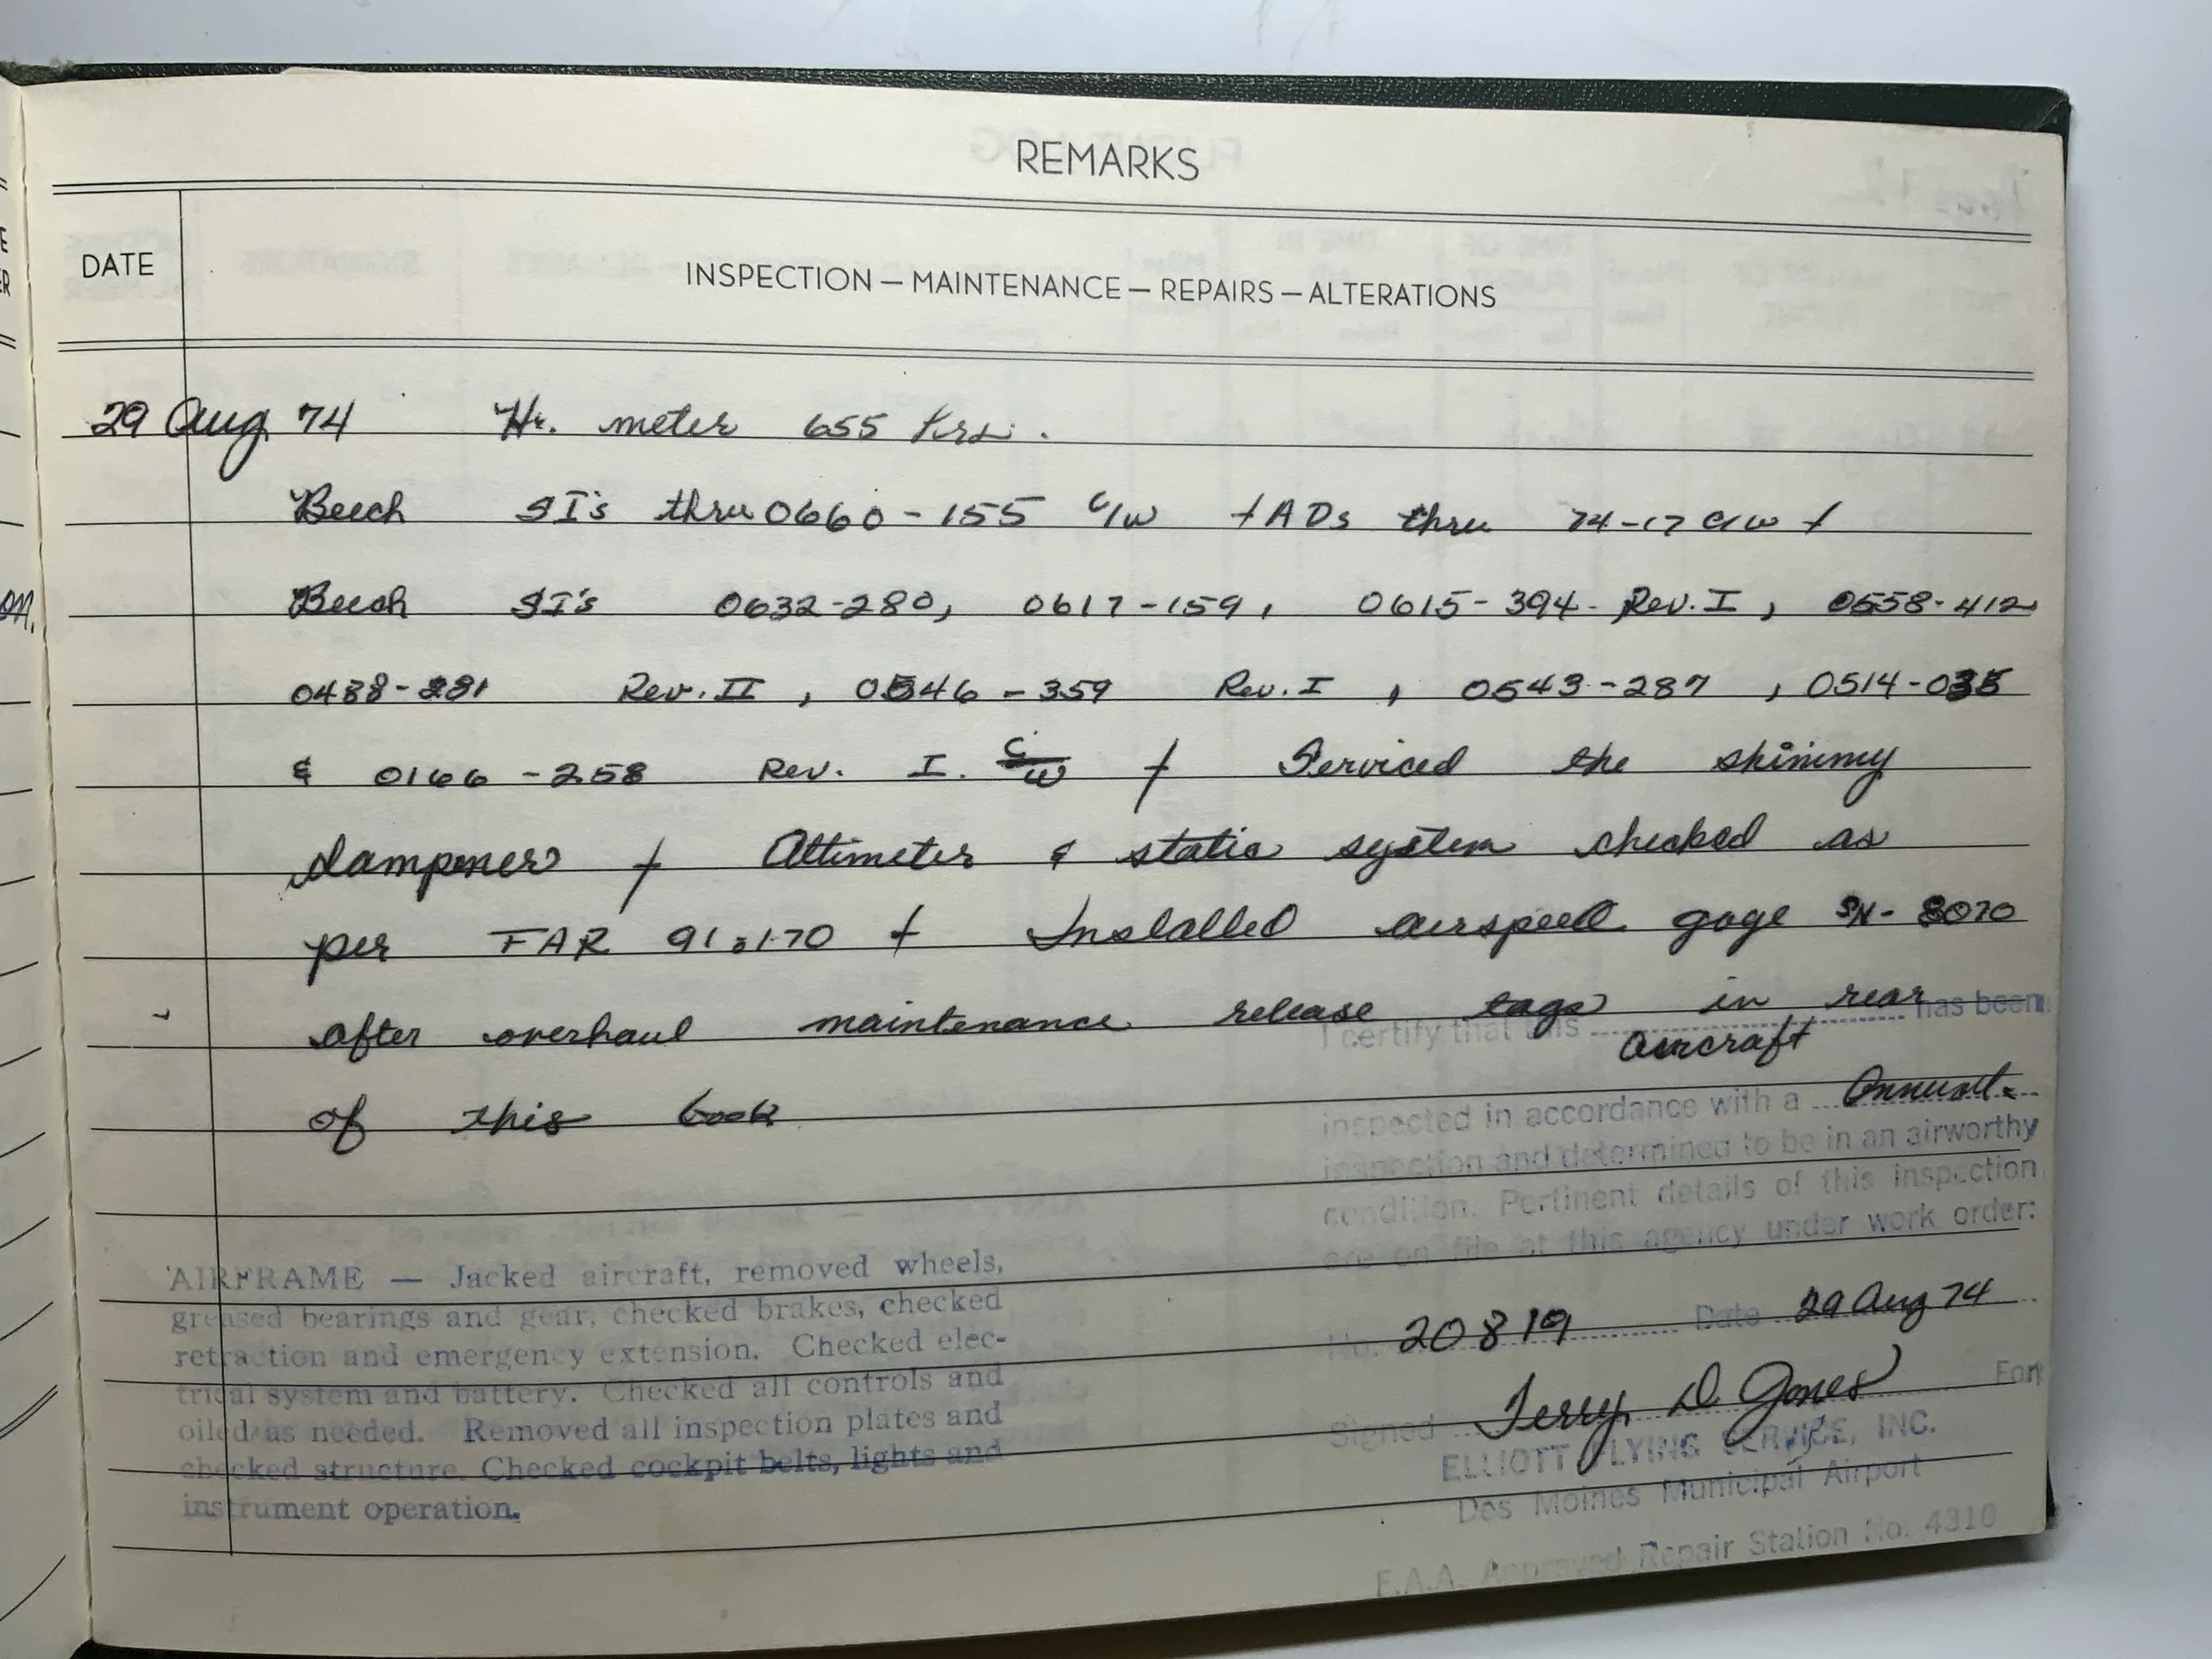 REMARKS
DATE
INSPECTION — MAINTENANCE — REPAIRS — ALTERATIONS
29 Aug 74 Hr. meter 655 hrs.
Beech SI's thru 0660-155 c/w + ADs thru 74-17 c/w +
Beech SI's 0632-280, 0617-159, 0615-394 Rev. I, 0558-412
0438-281 Rev. II, 0546-359 Rev. I, 0543-287, 0514-035
& 0166-258 Rev. I. c/w + Serviced the shimmy
dampener + Altimeter & static system checked as
per FAR 91.170 + Installed airspeed gage SN-8070
after overhaul maintenance release tags in rear
of this book
I certify that this aircraft has been
inspected in accordance with a Annual
inspection and determined to be in an airworthy
condition. Pertinent details of this inspection
are on file at this agency under work order:
No. 20819 Date 29 Aug 74
Signed Terry D Jones For
ELLIOTT FLYING SERVICE, INC.
Des Moines Municipal Airport
F.A.A. Approved Repair Station No. 4310
AIRFRAME — Jacked aircraft, removed wheels,
greased bearings and gear, checked brakes, checked
retraction and emergency extension. Checked elec-
trical system and battery. Checked all controls and
oiled as needed. Removed all inspection plates and
checked structure. Checked cockpit belts, lights and
instrument operation.